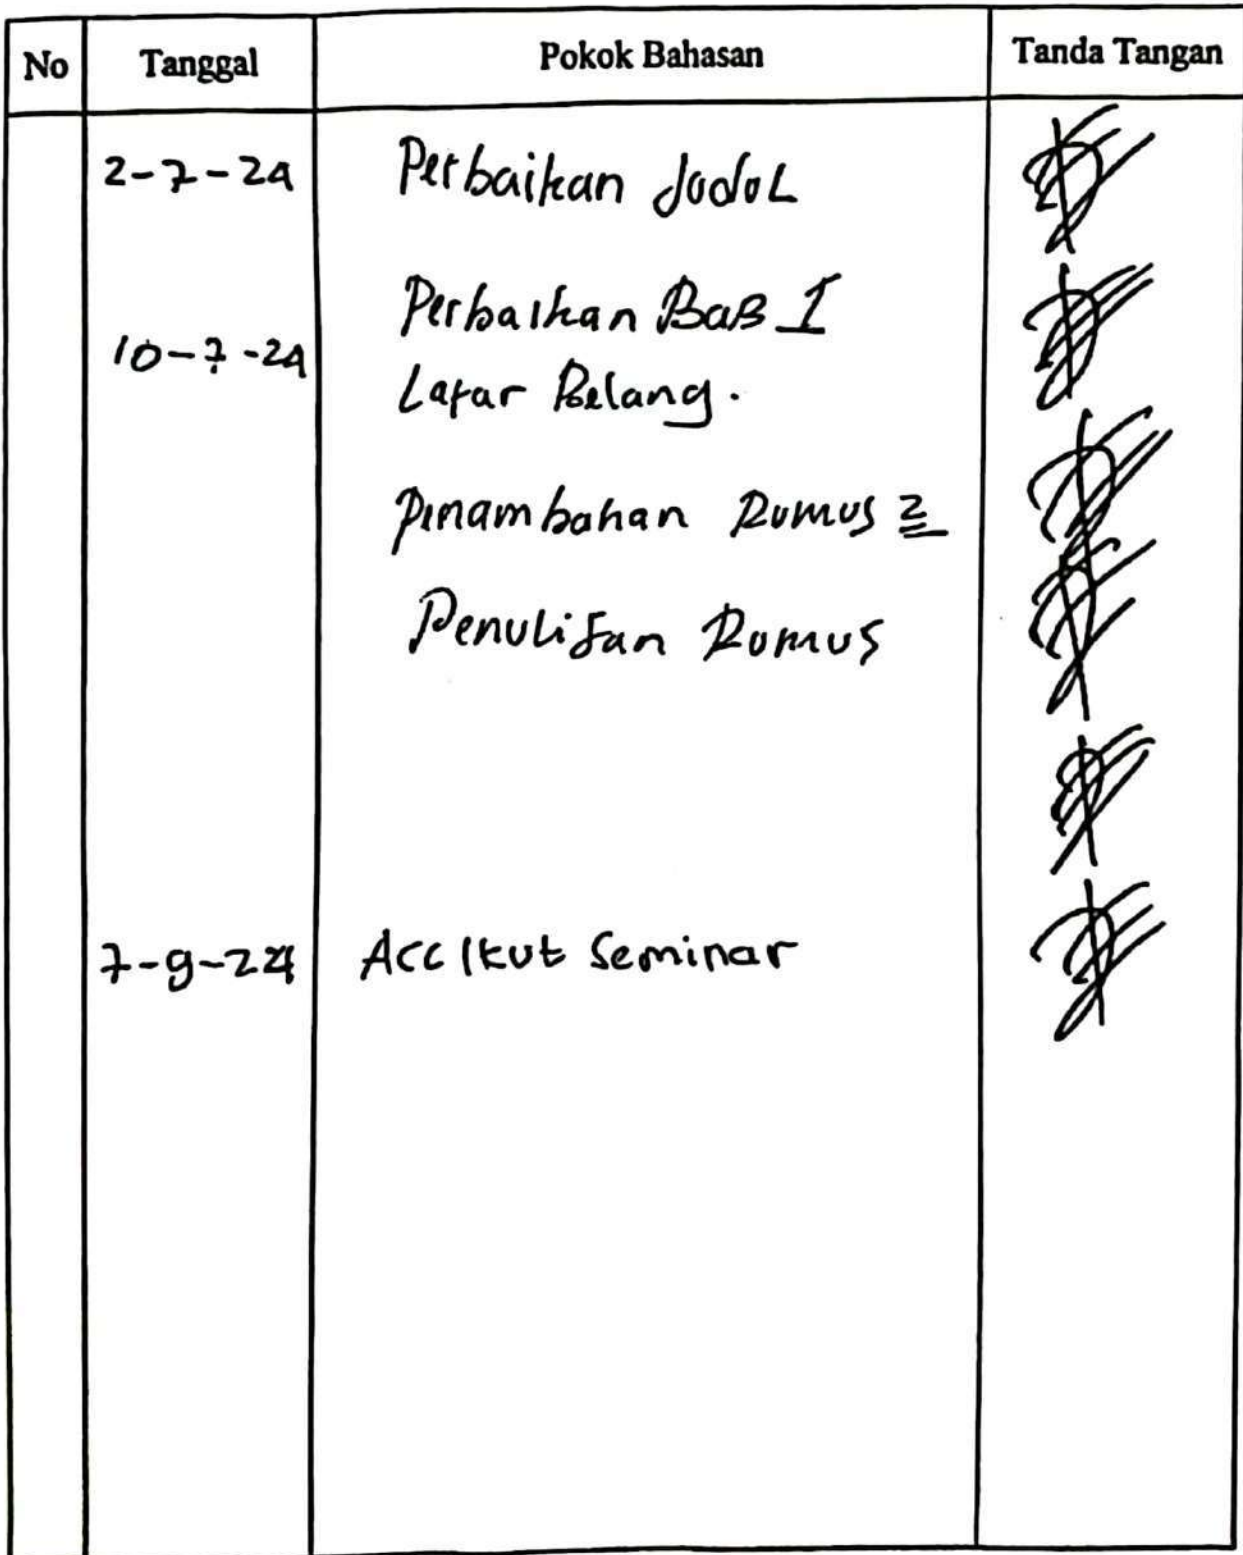 No Tanggal Pokok Bahasan Tanda Tangan
2-7-24 Perbaikan Judul
Perbaikan Bab I
10-7-24
Latar Belang.
Penambahan Rumus 2
Penulisan Rumus
7-9-24 Acc Ikut Seminar